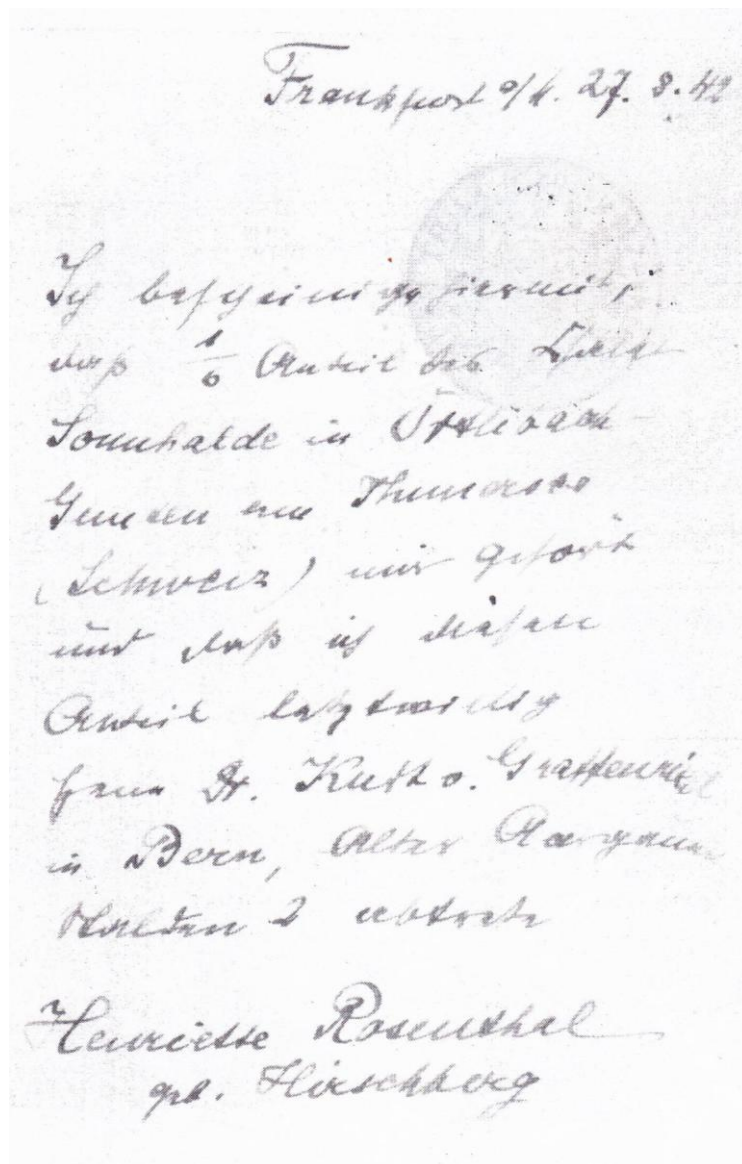 Frankfurt a/M. 27. 8. 42
Ich bescheinige hiermit,
daß 1/6 Anteil des
Sonnhalde in Örtlibach
Gunten am Thunersee
(Schweiz) mir gehört
und daß ich diesen
Anteil letztwillig
Herrn Dr. Kurt v. Graffenried
in Bern, Alter Aargauer
Stalden 2 abtrete
Henriette Rosenthal
geb. Hirschberg